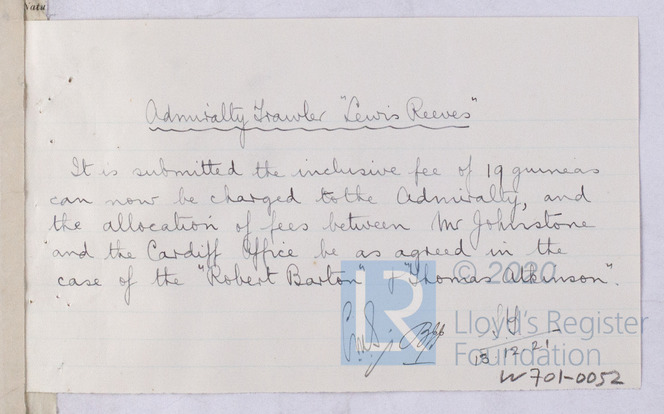 Natu
Admiralty Trawler "Lewis Reeves"
It is submitted the inclusive fee of 19 guineas
can now be charged to the Admiralty, and
the allocation of fees between Mr Johnstone
and the Cardiff Office be as agreed in the
case of the "Robert Barton" & "Thomas Atkinson".
© 2020
LR
Lloyd's Register
Foundation
13 12 21
W701-0052